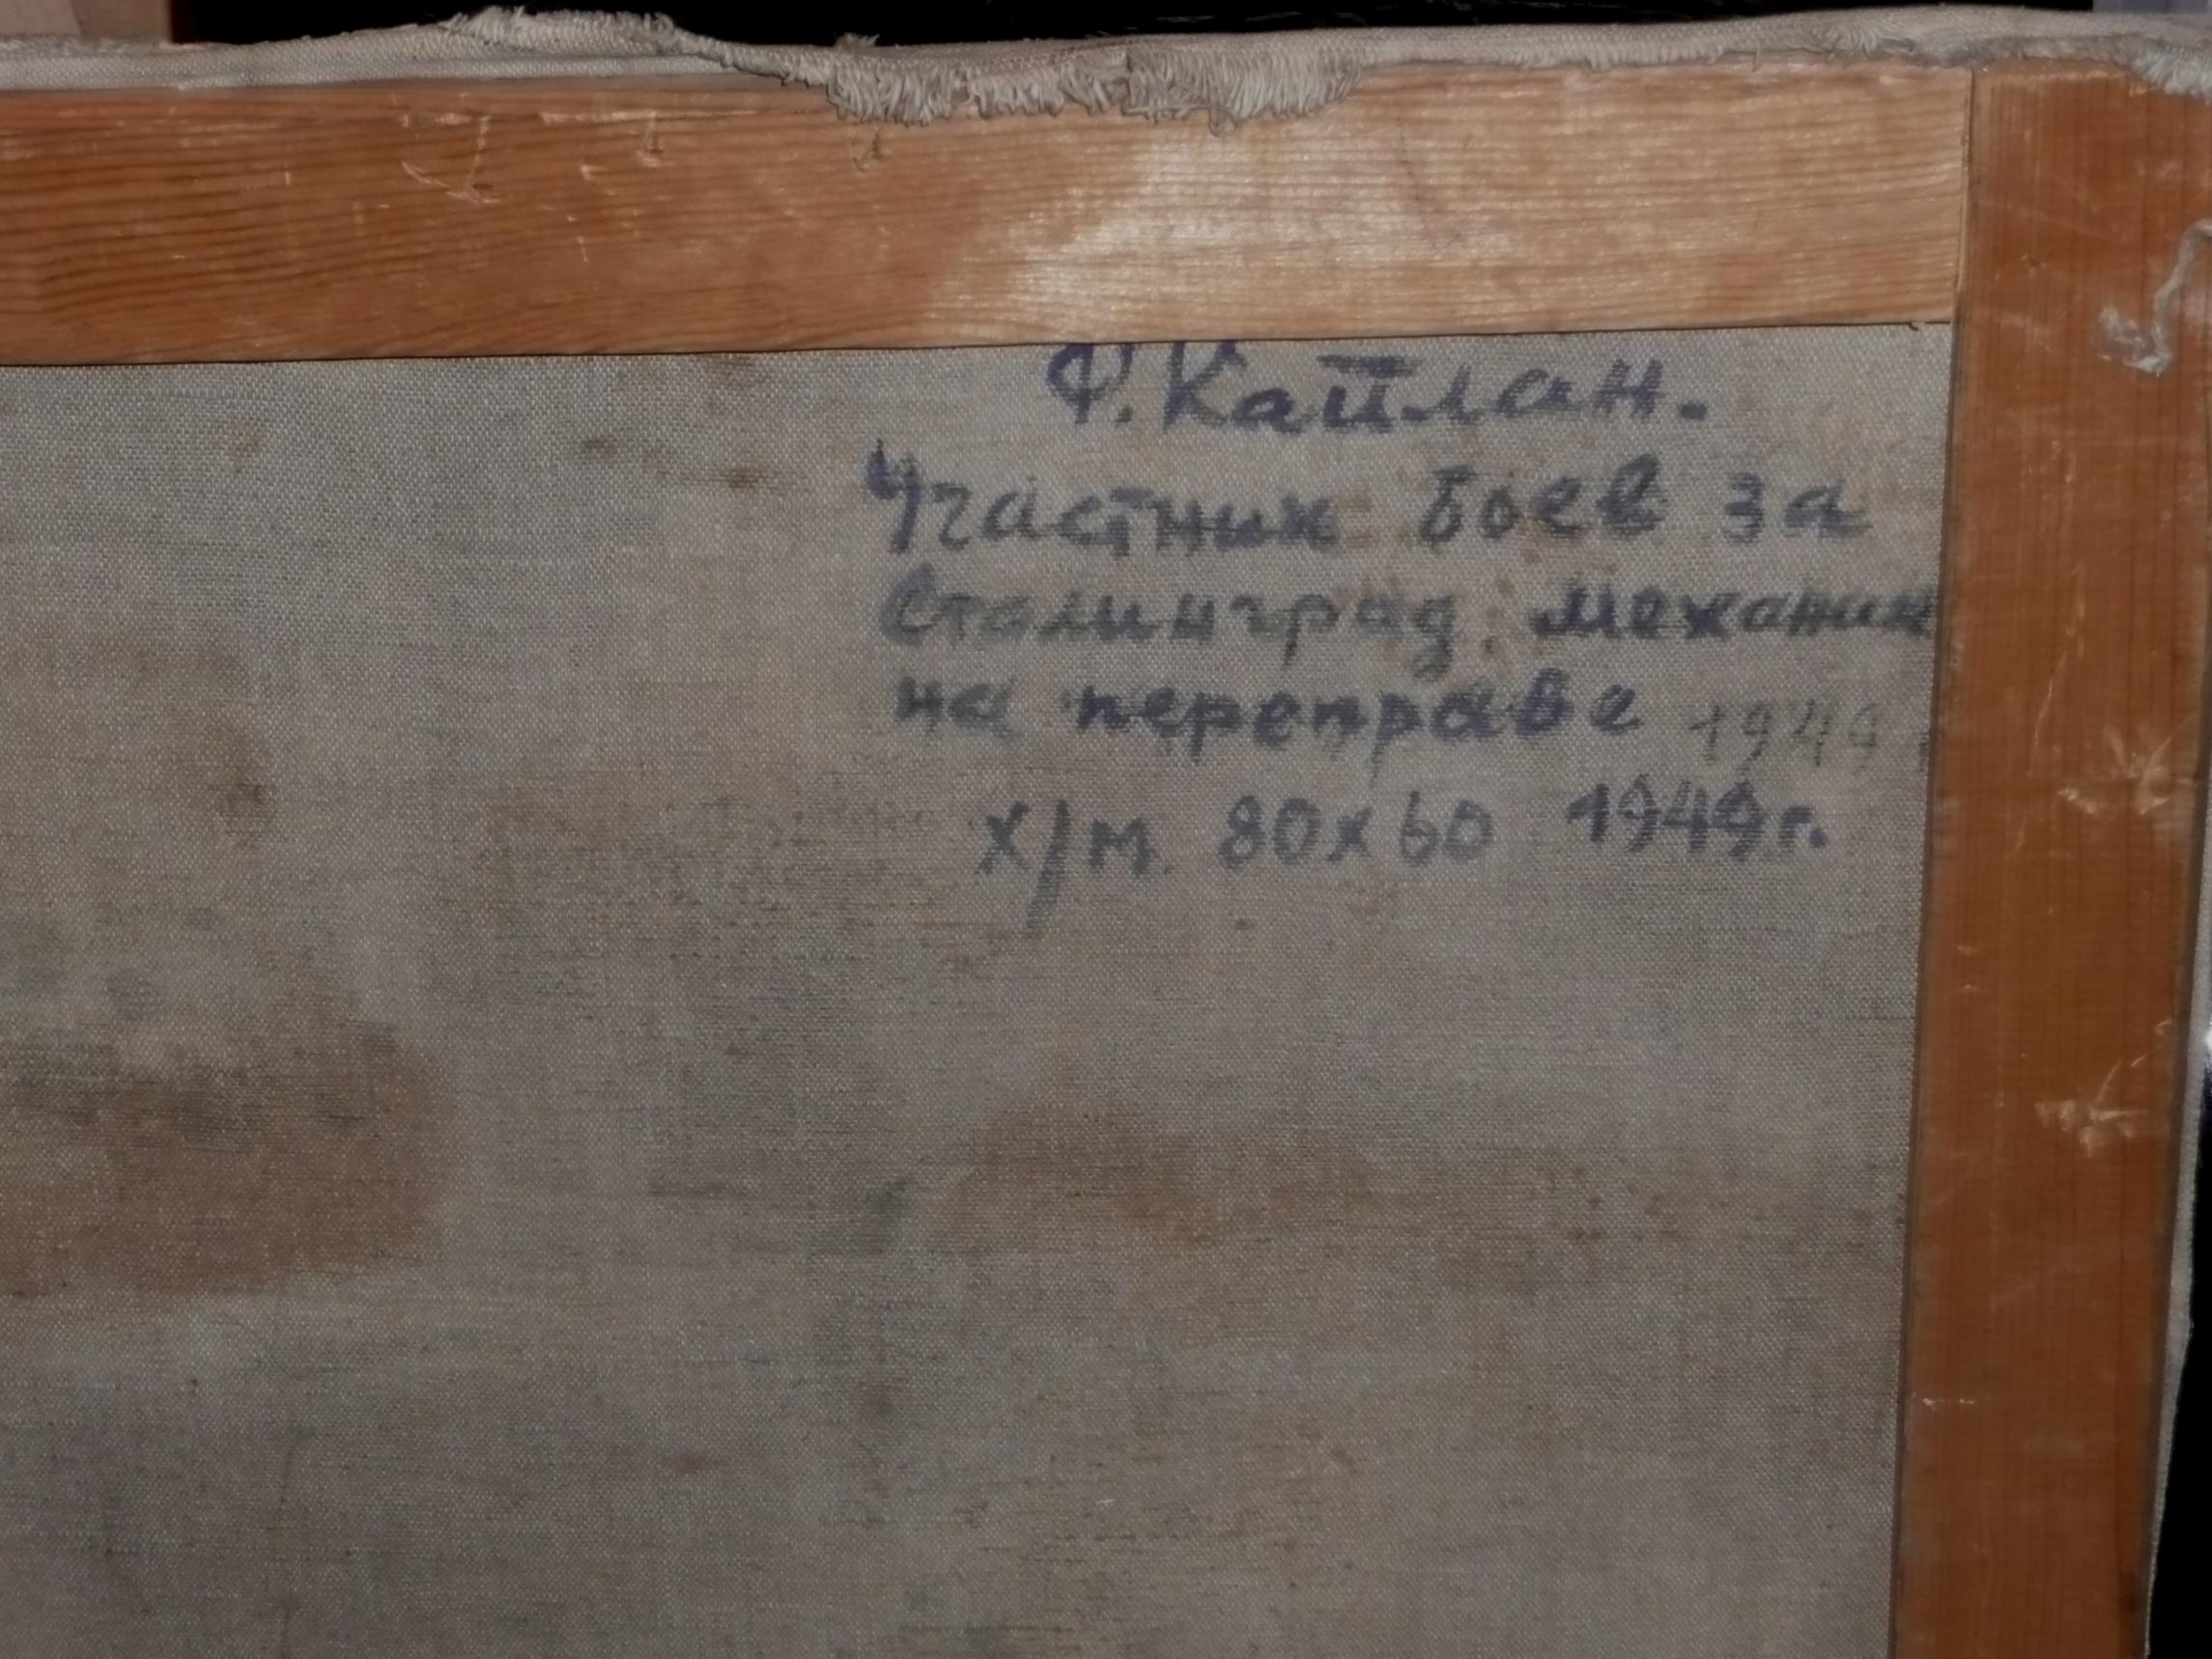 Ф. Каплан.
Участник боев за
Сталинград, механик
на переправе 1949
х/м. 80х60 1949г.